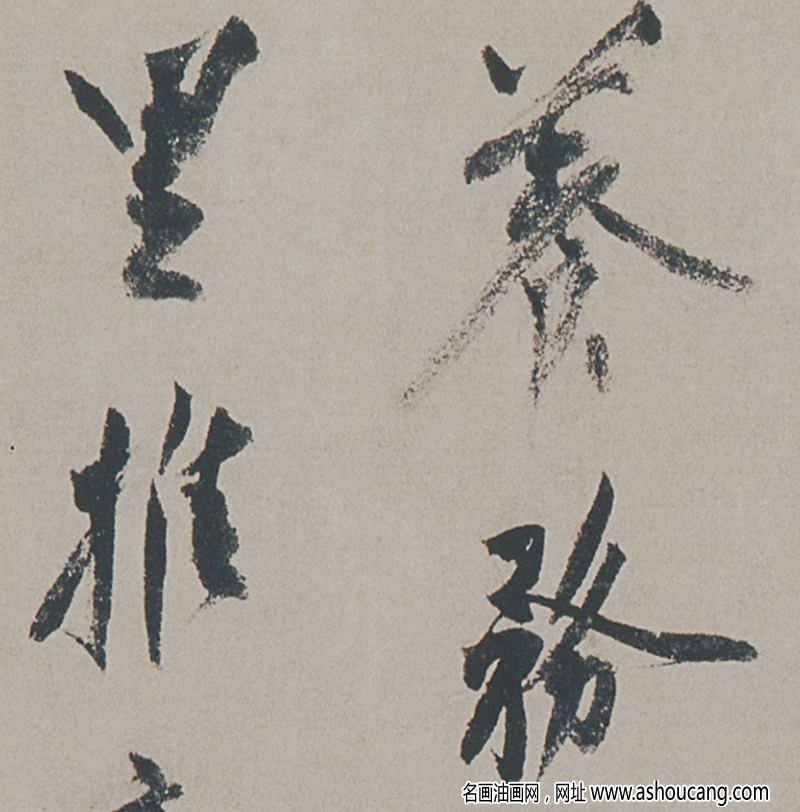 養務
里推
名画油画网，网址 www.ashoucang.com